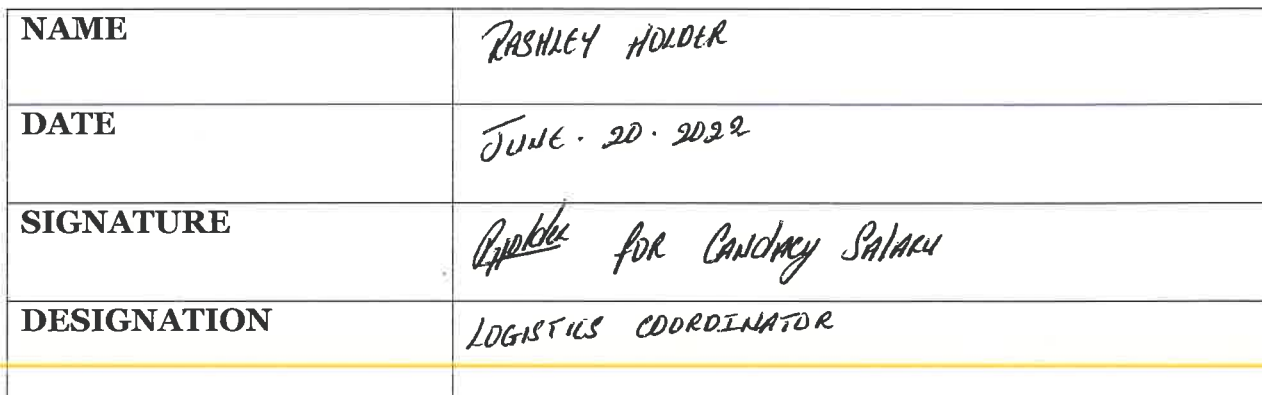 NAME RASHLEY HOLDER
DATE JUNE. 20. 2022
SIGNATURE RHolder for CANDACY SALARY
DESIGNATION LOGISTICS COORDINATOR